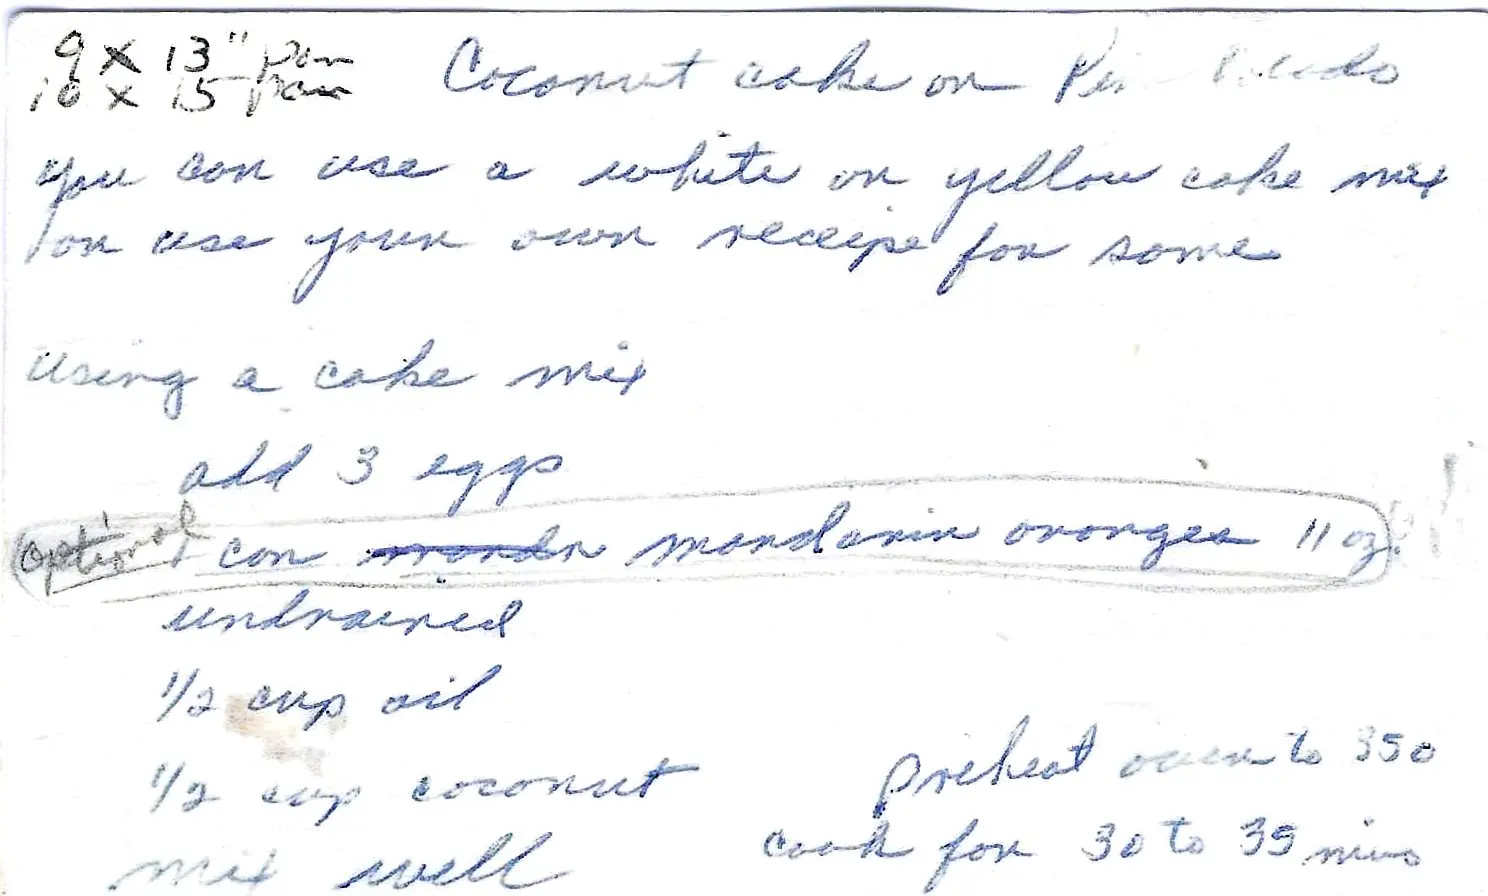 9 x 13" Pan
10 x 15 pan
Coconut cake or
you can use a white or yellow cake mix
or use your own receipe for some
using a cake mix
add 3 eggs
optional 1 can mandarin oranges 11 oz.
undrained
1/2 cup oil
1/2 cup coconut
preheat oven to 350
mix well
cook for 30 to 35 mins